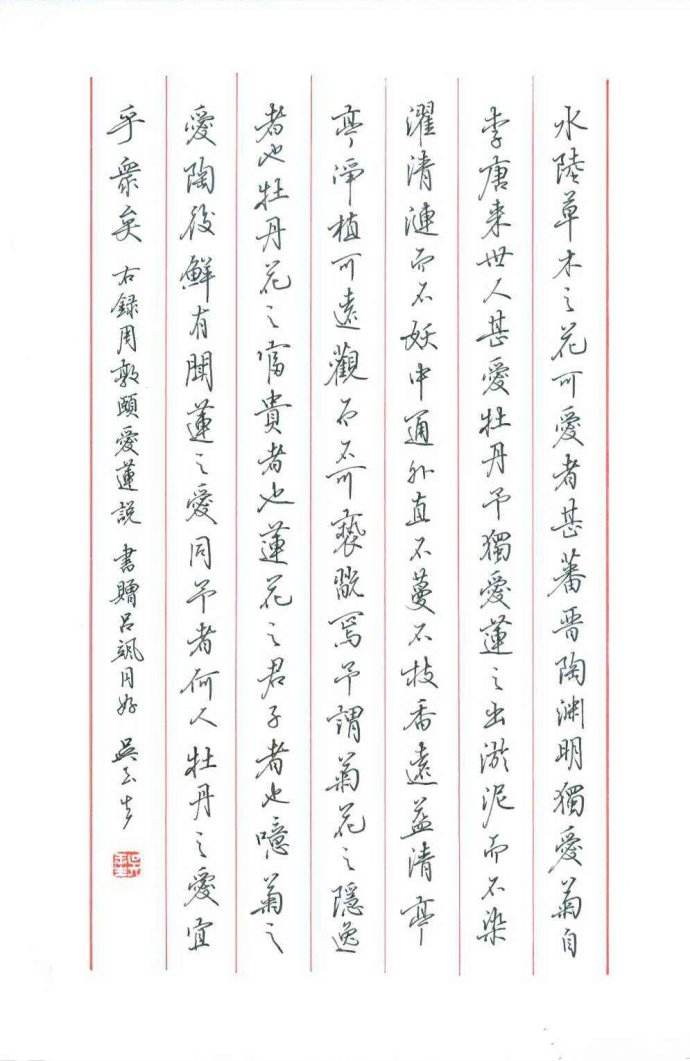 水陸草木之花可愛者甚蕃晉陶淵明獨愛菊自
李唐来世人甚愛牡丹予獨愛蓮之出淤泥而不染
濯清漣而不妖中通外直不蔓不枝香遠益清亭
亭淨植可遠觀而不可褻翫焉予謂菊花之隱逸
者也牡丹花之富貴者也蓮花之君子者也噫菊之
愛陶後鮮有聞蓮之愛同予者何人牡丹之愛宜
乎衆矣 右録周敦頤愛蓮説 書贈吕颯同好 吳玉生